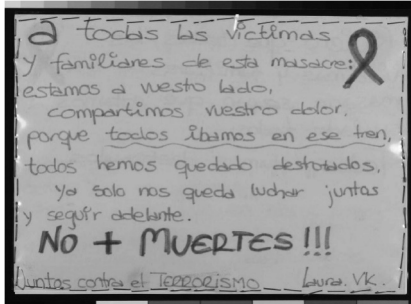 a todas las víctimas
y familiares de esta masacre:
estamos a vuestro lado,
compartimos vuestro dolor,
porque todos íbamos en ese tren,
todos hemos quedado destrozados.
Ya solo nos queda luchar juntos
y seguir adelante.
NO + MUERTES!!!
Juntos contra el TERRORISMO Laura. VK.